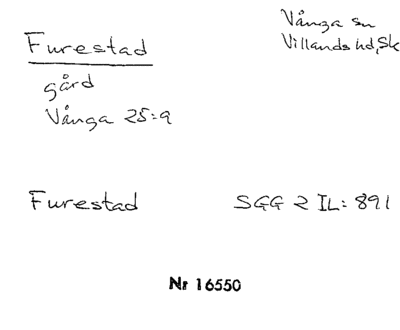 Furestad
Vånga sn
Villands hd, Sk
gård
Vånga 25:9
Furestad SGG 2 IL: 891
Nr 16550